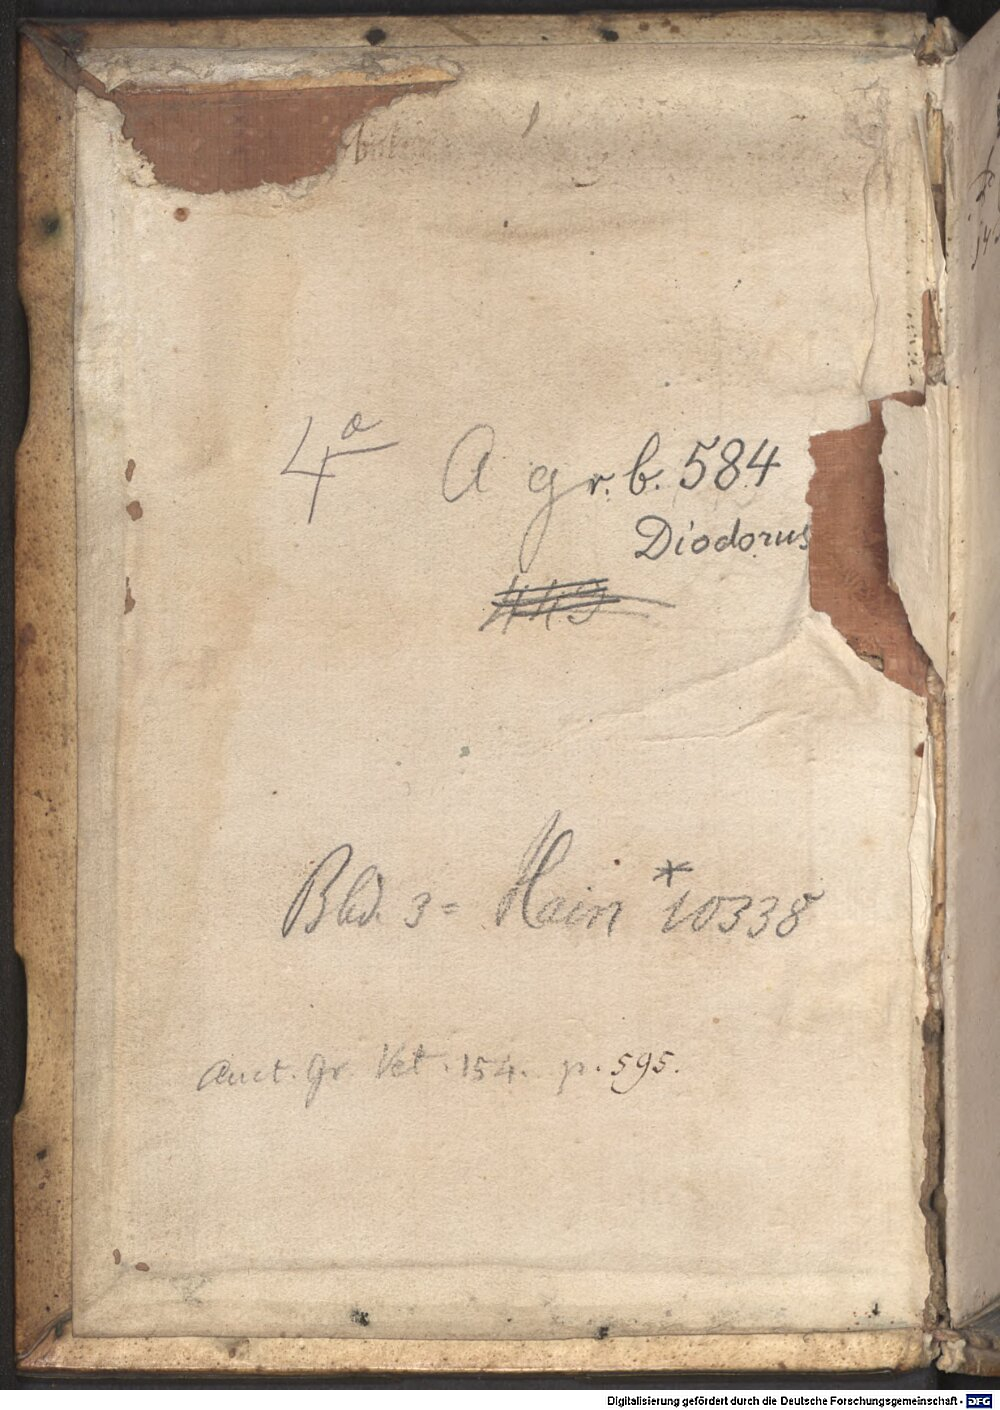 4º A gr. b. 584
Diodorus
Bbd. 3 = Hain *10338
Auct. Gr. Vet. 154. p. 595.
Digitalisierung gefördert durch die Deutsche Forschungsgemeinschaft - DFG